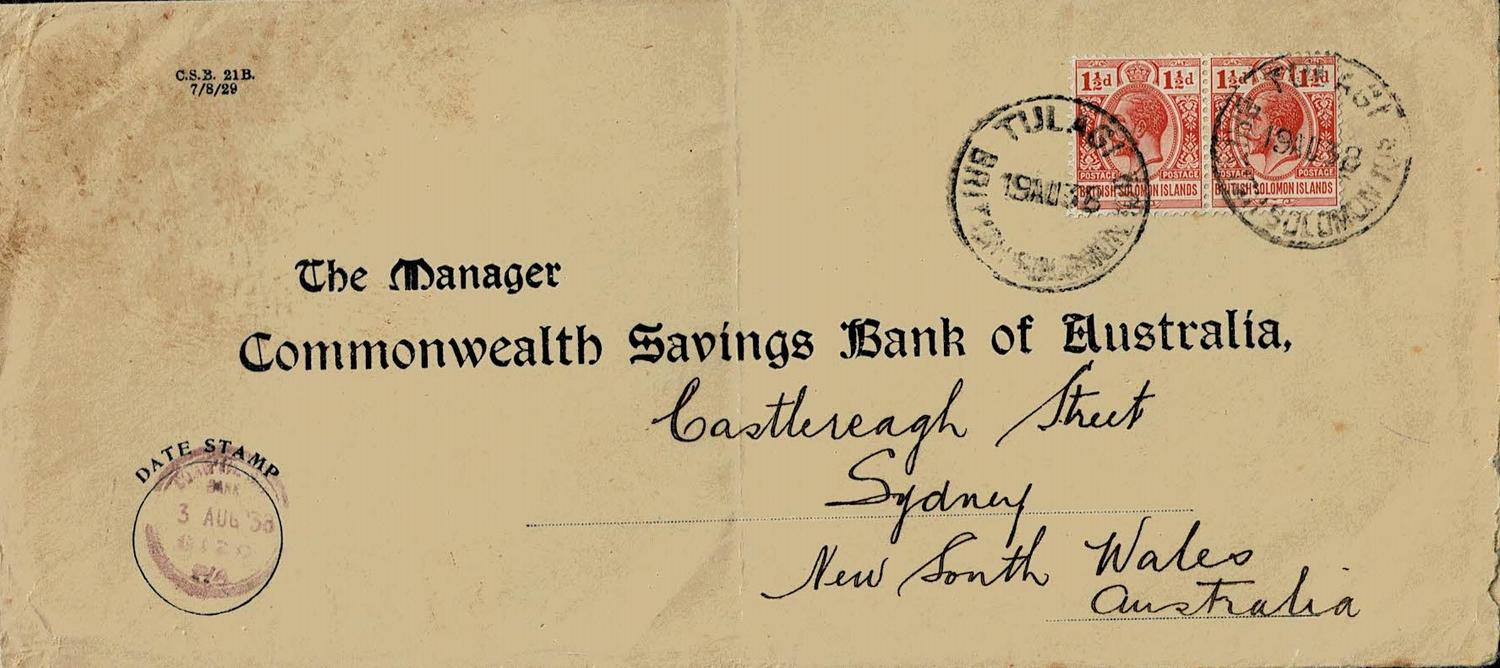 C.S.B. 21B.
7/8/29
1½d 1½d
POSTAGE POSTAGE
BRITISH SOLOMON ISLANDS
1½d 1½d
POSTAGE
BRITISH SOLOMON ISLANDS
TULAGI
19 AU 38
TULAGI
19 AU 38
SOLOMON
The Manager
Commonwealth Savings Bank of Australia,
Castlereagh Street
Sydney
New South Wales
Australia
DATE STAMP
BANK
3 AUG '38